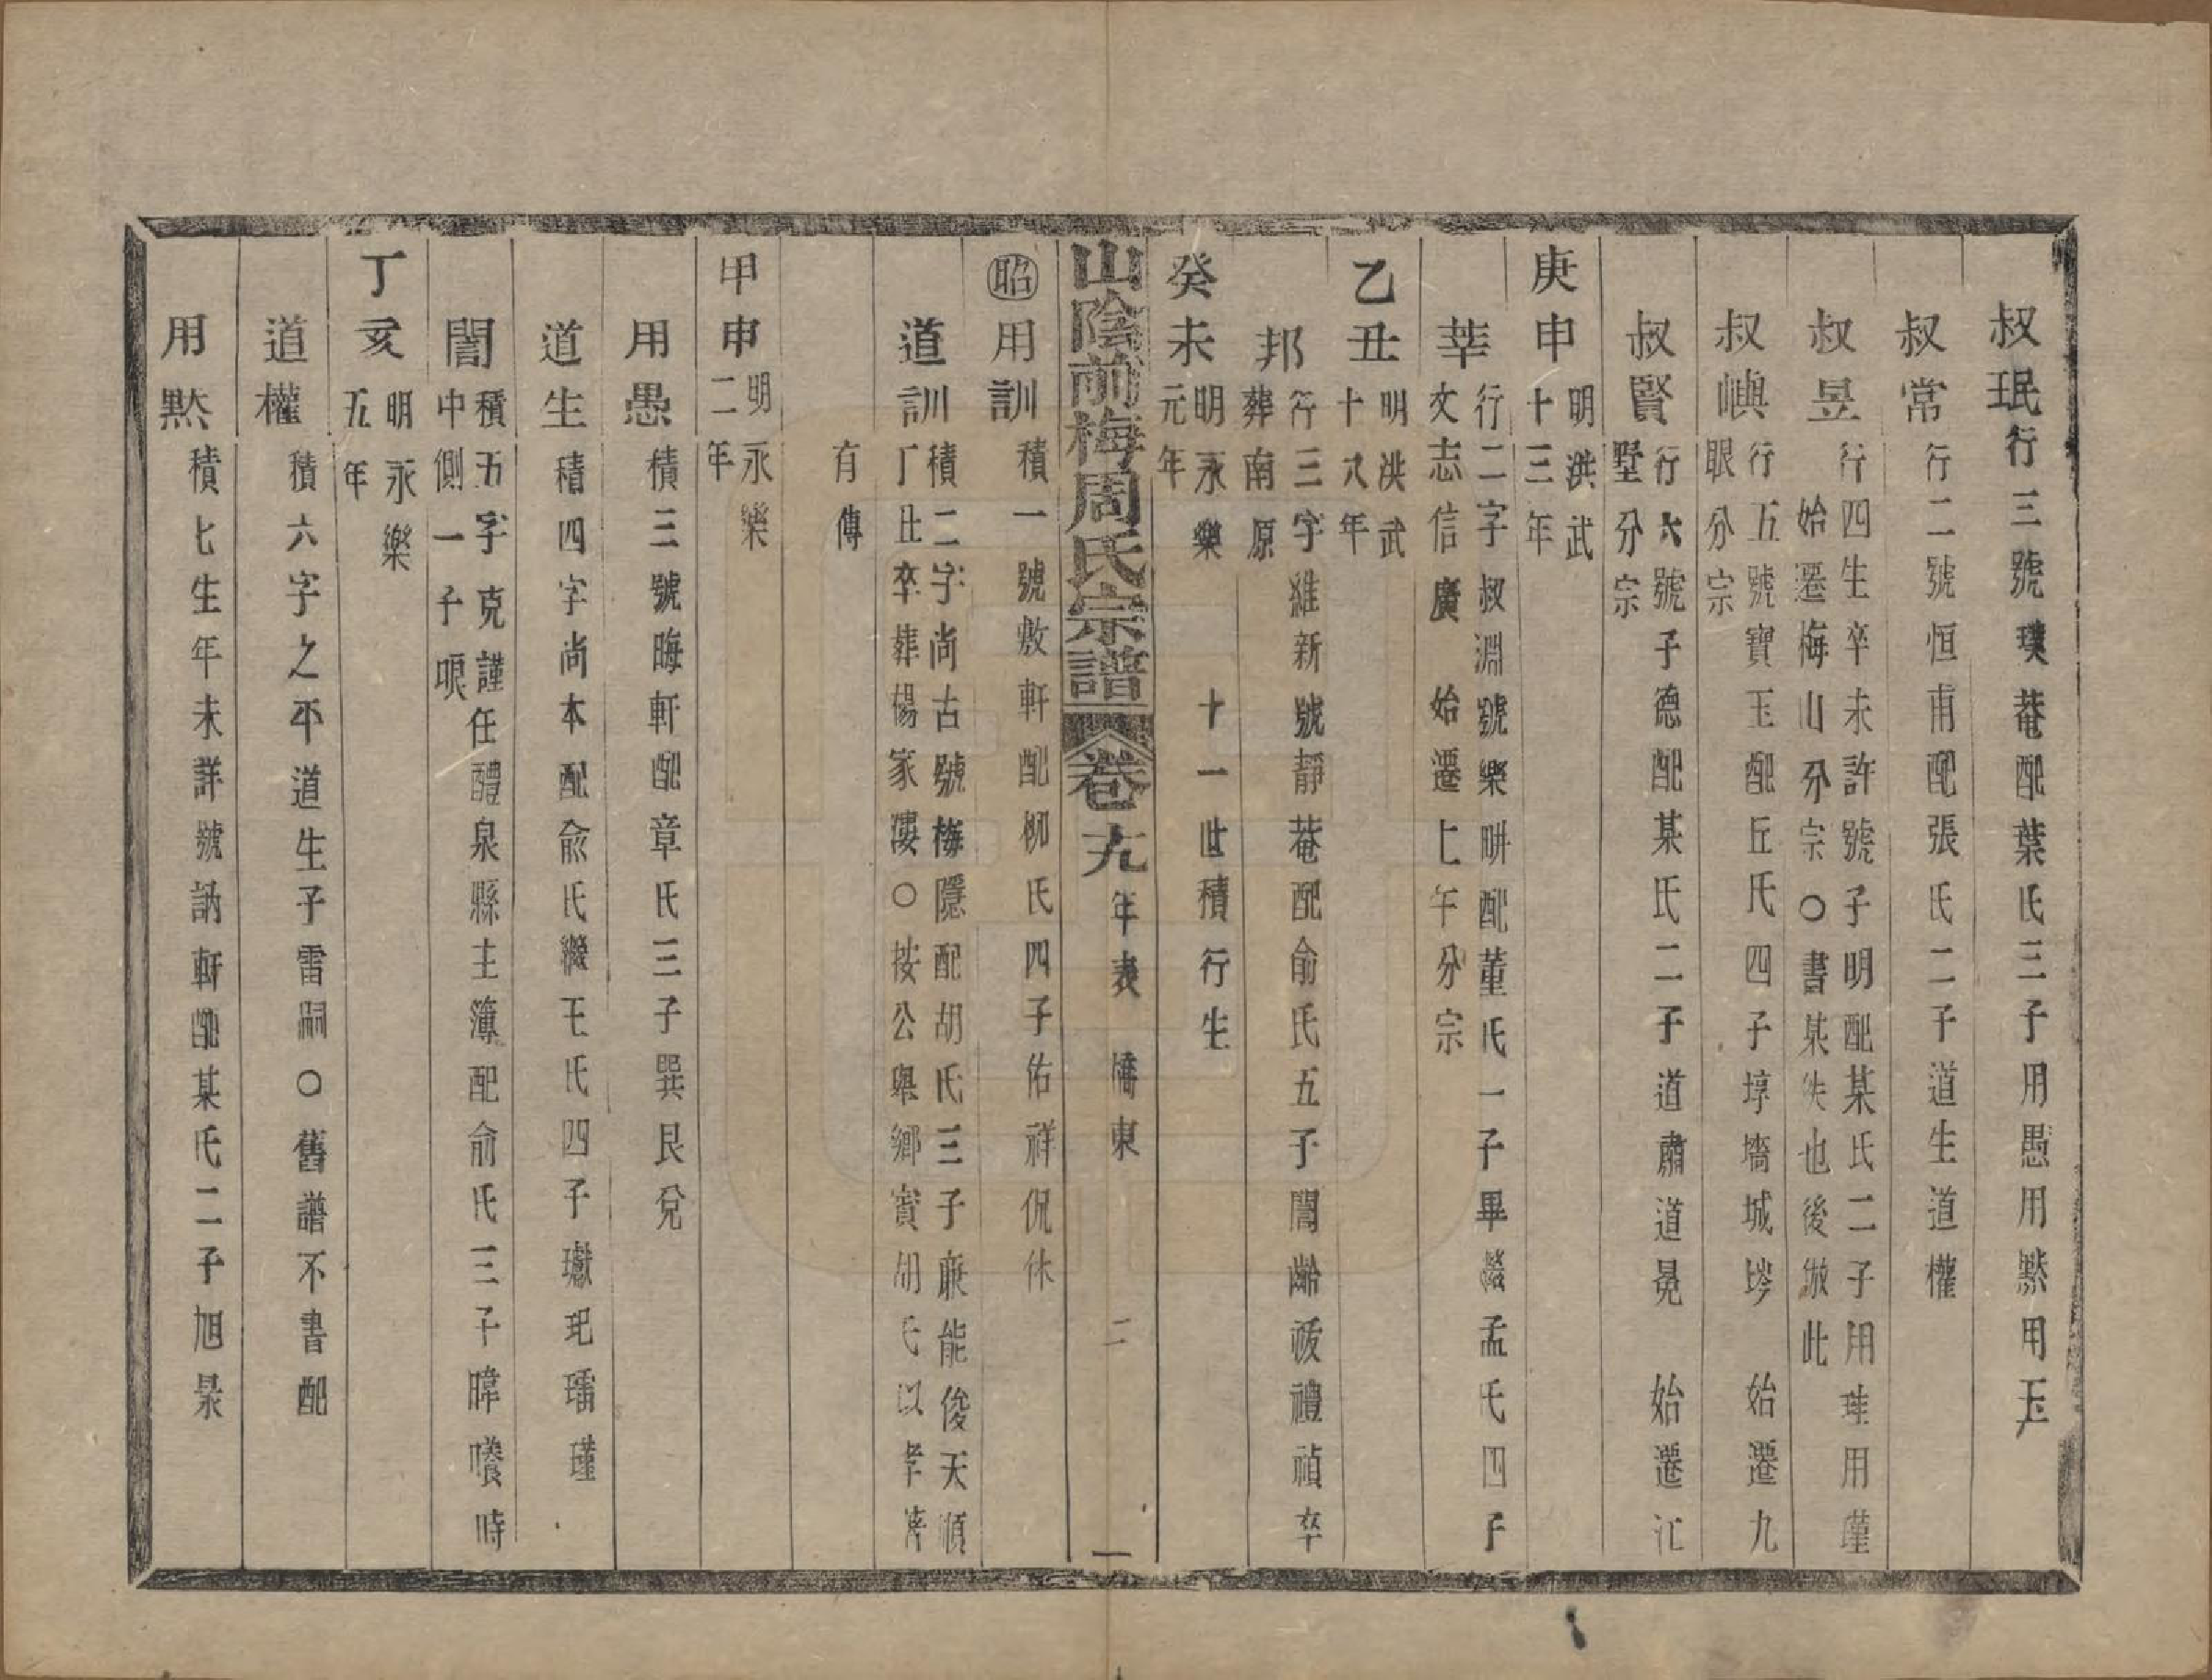 叔珉行三號璞菴配葉氏三子用愚用默用玉
叔常行二號恒甫配張氏二子道生道權
叔昱行四生卒未許號子明配某氏二子用珪用瑾
始遷梅山分宗○書某失也後倣此
叔嶼行五號寶玉配丘氏四子埻墧城埁 始遷九
眼分宗
叔賢行六號子德配某氏二子道肅道晃 始遷汇
墅分宗
庚申明洪武
十三年
莘行二字叔淵號樂畊配董氏一子畢繼孟氏四子
文志信廣 始遷上午分宗
乙丑明洪武
十八年
邦行三字維新號靜菴配俞氏五子誾齡祓禮禎卒
葬南原
癸未明永樂
元年 十一世積行生
山陰前梅周氏宗譜 卷十九 年表 橋東 二
昭用訓積一號敷軒配柳氏四子佑祥侃休
道訓積二字尚古號梅隱配胡氏三子廉能俊天順
丁丑卒葬楊家漊○按公舉鄉賓胡氏以孝旌
有傳
甲申明永樂
二年
用愚積三號晦軒配章氏三子巽艮兌
道生積四字尚本配俞氏繼王氏四子瓛玘璠瑾
誾積五字克謹任醴泉縣主簿配俞氏三子暐㬢時
中側一子㫰
丁亥明永樂
五年
道權積六字之平道生子雷嗣○舊譜不書配
用默積七生年未詳號訥軒配某氏二子旭杲